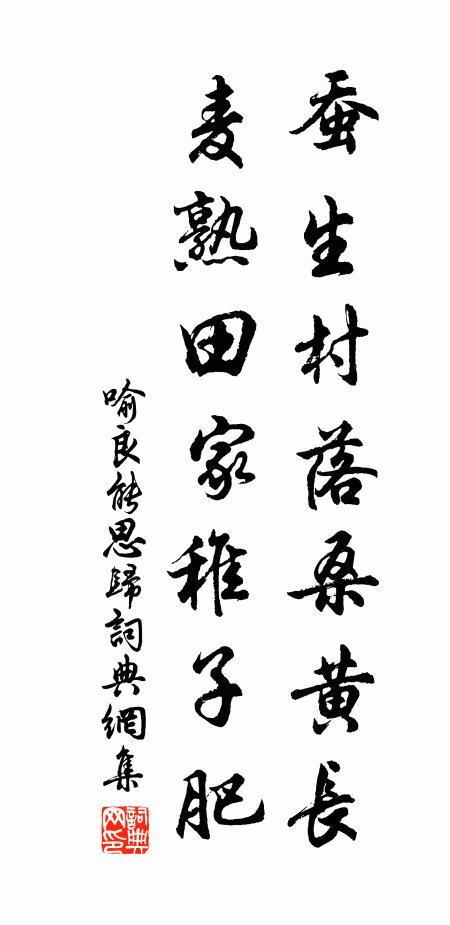 蚕生村落桑黄長
麦熟田家稚子肥
喻良能思歸詞典網集
詞典网印